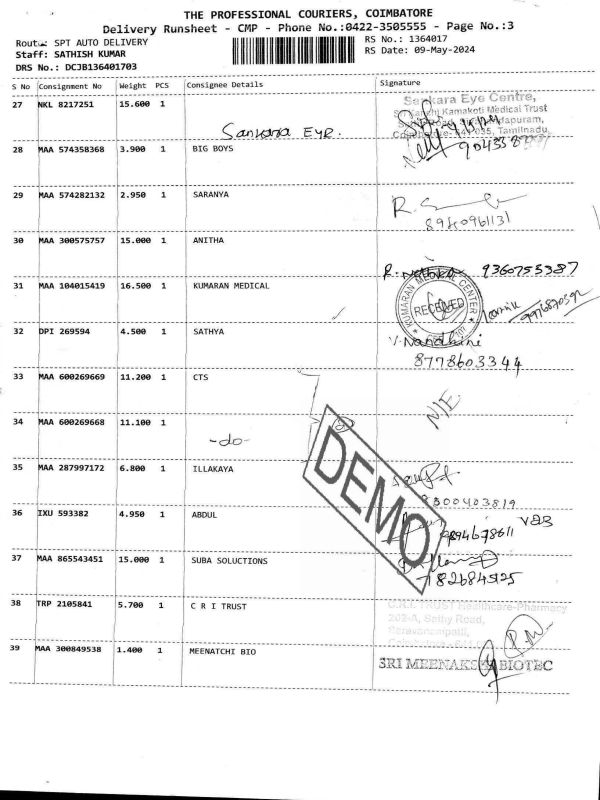 THE PROFESSIONAL COURIERS, COIMBATORE
Delivery Runsheet - CMP - Phone No.:0422-3505555 - Page No.:3
Route: SPT AUTO DELIVERY
RS No.: 1364017
Staff: SATHISH KUMAR
RS Date: 09-May-2024
DRS No.: DCJB136401703
S No Consignment No Weight PCS Consignee Details Signature
27 NKL 8217251 15.600 1
Sankara Eye Centre,
Kamakoti Medical Trust
Tamilnadu.
Sankara EYE.
28 MAA 574358368 3.900 1 BIG BOYS
29 MAA 574282132 2.950 1 SARANYA
8940961131
30 MAA 300575757 15.000 1 ANITHA
9360755387
31 MAA 104015419 16.500 1 KUMARAN MEDICAL
KUMARAN MEDICAL CENTER
RECEIVED
32 DPI 269594 4.500 1 SATHYA
V. Nandhini
8778603344
33 MAA 600269669 11.200 1 CTS
N/E
34 MAA 600269668 11.100 1
-do-
DEMO
35 MAA 287997172 6.800 1 ILLAKAYA
8300403819
36 IXU 593382 4.950 1 ABDUL
37 MAA 865543451 15.000 1 SUBA SOLUCTIONS
38 TRP 2105841 5.700 1 C R I TRUST
C.R.I. TRUST Healthcare-Pharmacy
202-A, Sathy Road,
Saravanampatti,
P.M
39 MAA 300849538 1.400 1 MEENATCHI BIO
SRI MEENAKSHI BIOTEC